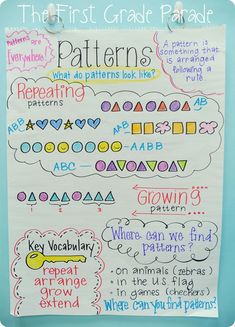 The First Grade Parade
Patterns are everywhere!
Patterns
What do patterns look like?
A pattern is
something that
is arranged
following a
rule.
Repeating
patterns
AB
ABB
AABB
ABC
Growing
pattern
1 2 3
Where can we find
patterns?
Key Vocabulary
repeat
arrange
grow
extend
on animals (zebras)
in the U.S. flag
in games (checkers)
Where can you find patterns?